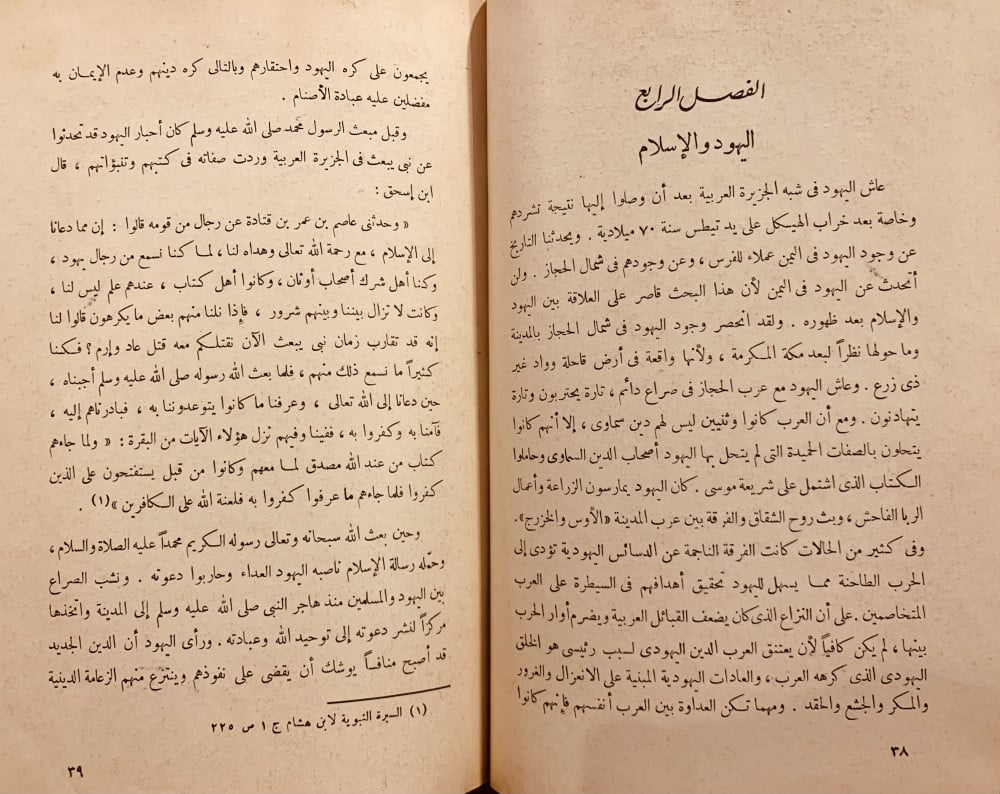 الفصل الرابع
اليهود والإسلام
عاش اليهود فى شبه الجزيرة العربية بعد أن وصلوا إليها نتيجة تشردهم
وخاصة بعد خراب الهيكل على يد تيطس سنة ٧٠ ميلادية . ويحدثنا التاريخ
عن وجود اليهود فى اليمن عملاء للفرس ، وعن وجودهم فى شمال الحجاز . ولن
أتحدث عن اليهود فى اليمن لأن هذا البحث قاصر على العلاقة بين اليهود
والإسلام بعد ظهوره . ولقد انحصر وجود اليهود فى شمال الحجاز بالمدينة
وما حولها نظراً لبعد مكة المكرمة ، ولأنها واقعة فى أرض قاحلة وواد غير
ذى زرع . وعاش اليهود مع عرب الحجاز فى صراع دائم ، تارة يحتربون وتارة
يتهادنون . ومع أن العرب كانوا وثنيين ليس لهم دين سماوى ، إلا أنهم كانوا
يتحلون بالصفات الحميدة التى لم يتحل بها اليهود أصحاب الدين السماوى وحاملوا
الكتاب الذى اشتمل على شريعة موسى . كان اليهود يمارسون الزراعة وأعمال
الربا الفاحش ، وبث روح الشقاق والفرقة بين عرب المدينة «الأوس والخزرج».
وفى كثير من الحالات كانت الفرقة الناجمة عن الدسائس اليهودية تؤدى إلى
الحرب الطاحنة مما يسهل لليهود تحقيق أهدافهم فى السيطرة على العرب
المتخاصمين . على أن النزاع الذى كان يضعف القبائل العربية ويضرم أوار الحرب
بينها ، لم يكن كافياً لأن يعتنق العرب الدين اليهودى لسبب رئيسى هو الخلق
اليهودى الذى كرهه العرب ، والعادات اليهودية المبنية على الانعزال والغرور
والمكر والجشع والحقد . ومهما تكن العداوة بين العرب أنفسهم فإنهم كانوا
٣٨
يجمعون على كره اليهود واحتقارهم وبالتالى كره دينهم وعدم الإيمان به
مفضلين عليه عبادة الأصنام .
وقبل مبعث الرسول محمد صلى الله عليه وسلم كان أحبار اليهود قد تحدثوا
عن نبى يبعث فى الجزيرة العربية وردت صفاته فى كتبهم وتنبؤاتهم ، قال
ابن إسحق :
« وحدثنى عاصم بن عمر بن قتادة عن رجال من قومه قالوا : إن مما دعانا
إلى الإسلام ، مع رحمة الله تعالى وهداه لنا ، لما كنا نسمع من رجال يهود ،
وكنا أهل شرك أصحاب أوثان ، وكانوا أهل كتاب ، عندهم علم ليس لنا ،
وكانت لا تزال بيننا وبينهم شرور ، فإذا نلنا منهم بعض ما يكرهون قالوا لنا
إنه قد تقارب زمان نبى يبعث الآن نقتلكم معه قتل عاد وإرم ؟ فكنا
كثيراً ما نسمع ذلك منهم ، فلما بعث الله رسوله صلى الله عليه وسلم أجبناه ،
حين دعانا إلى الله تعالى ، وعرفنا ما كانوا يتوعدوننا به ، فبادرناهم إليه ،
فآمنا به وكفروا به ، ففينا وفيهم نزل هؤلاء الآيات من البقرة : « ولما جاءهم
كتاب من عند الله مصدق لما معهم وكانوا من قبل يستفتحون على الذين
كفروا فلما جاءهم ما عرفوا كفروا به فلعنة الله على الكافرين »(١) .
وحين بعث الله سبحانه وتعالى رسوله الكريم محمداً عليه الصلاة والسلام ،
وحمّله رسالة الإسلام ناصبه اليهود العداء وحاربوا دعوته . ونشب الصراع
بين اليهود والمسلمين منذ هاجر النبى صلى الله عليه وسلم إلى المدينة واتخذها
مركزاً لنشر دعوته إلى توحيد الله وعبادته . ورأى اليهود أن الدين الجديد
قد أصبح منافساً يوشك أن يقضى على نفوذهم وينتزع منهم الزعامة الدينية
(١) السيرة النبوية لابن هشام ج ١ ص ٢٢٥
٣٩